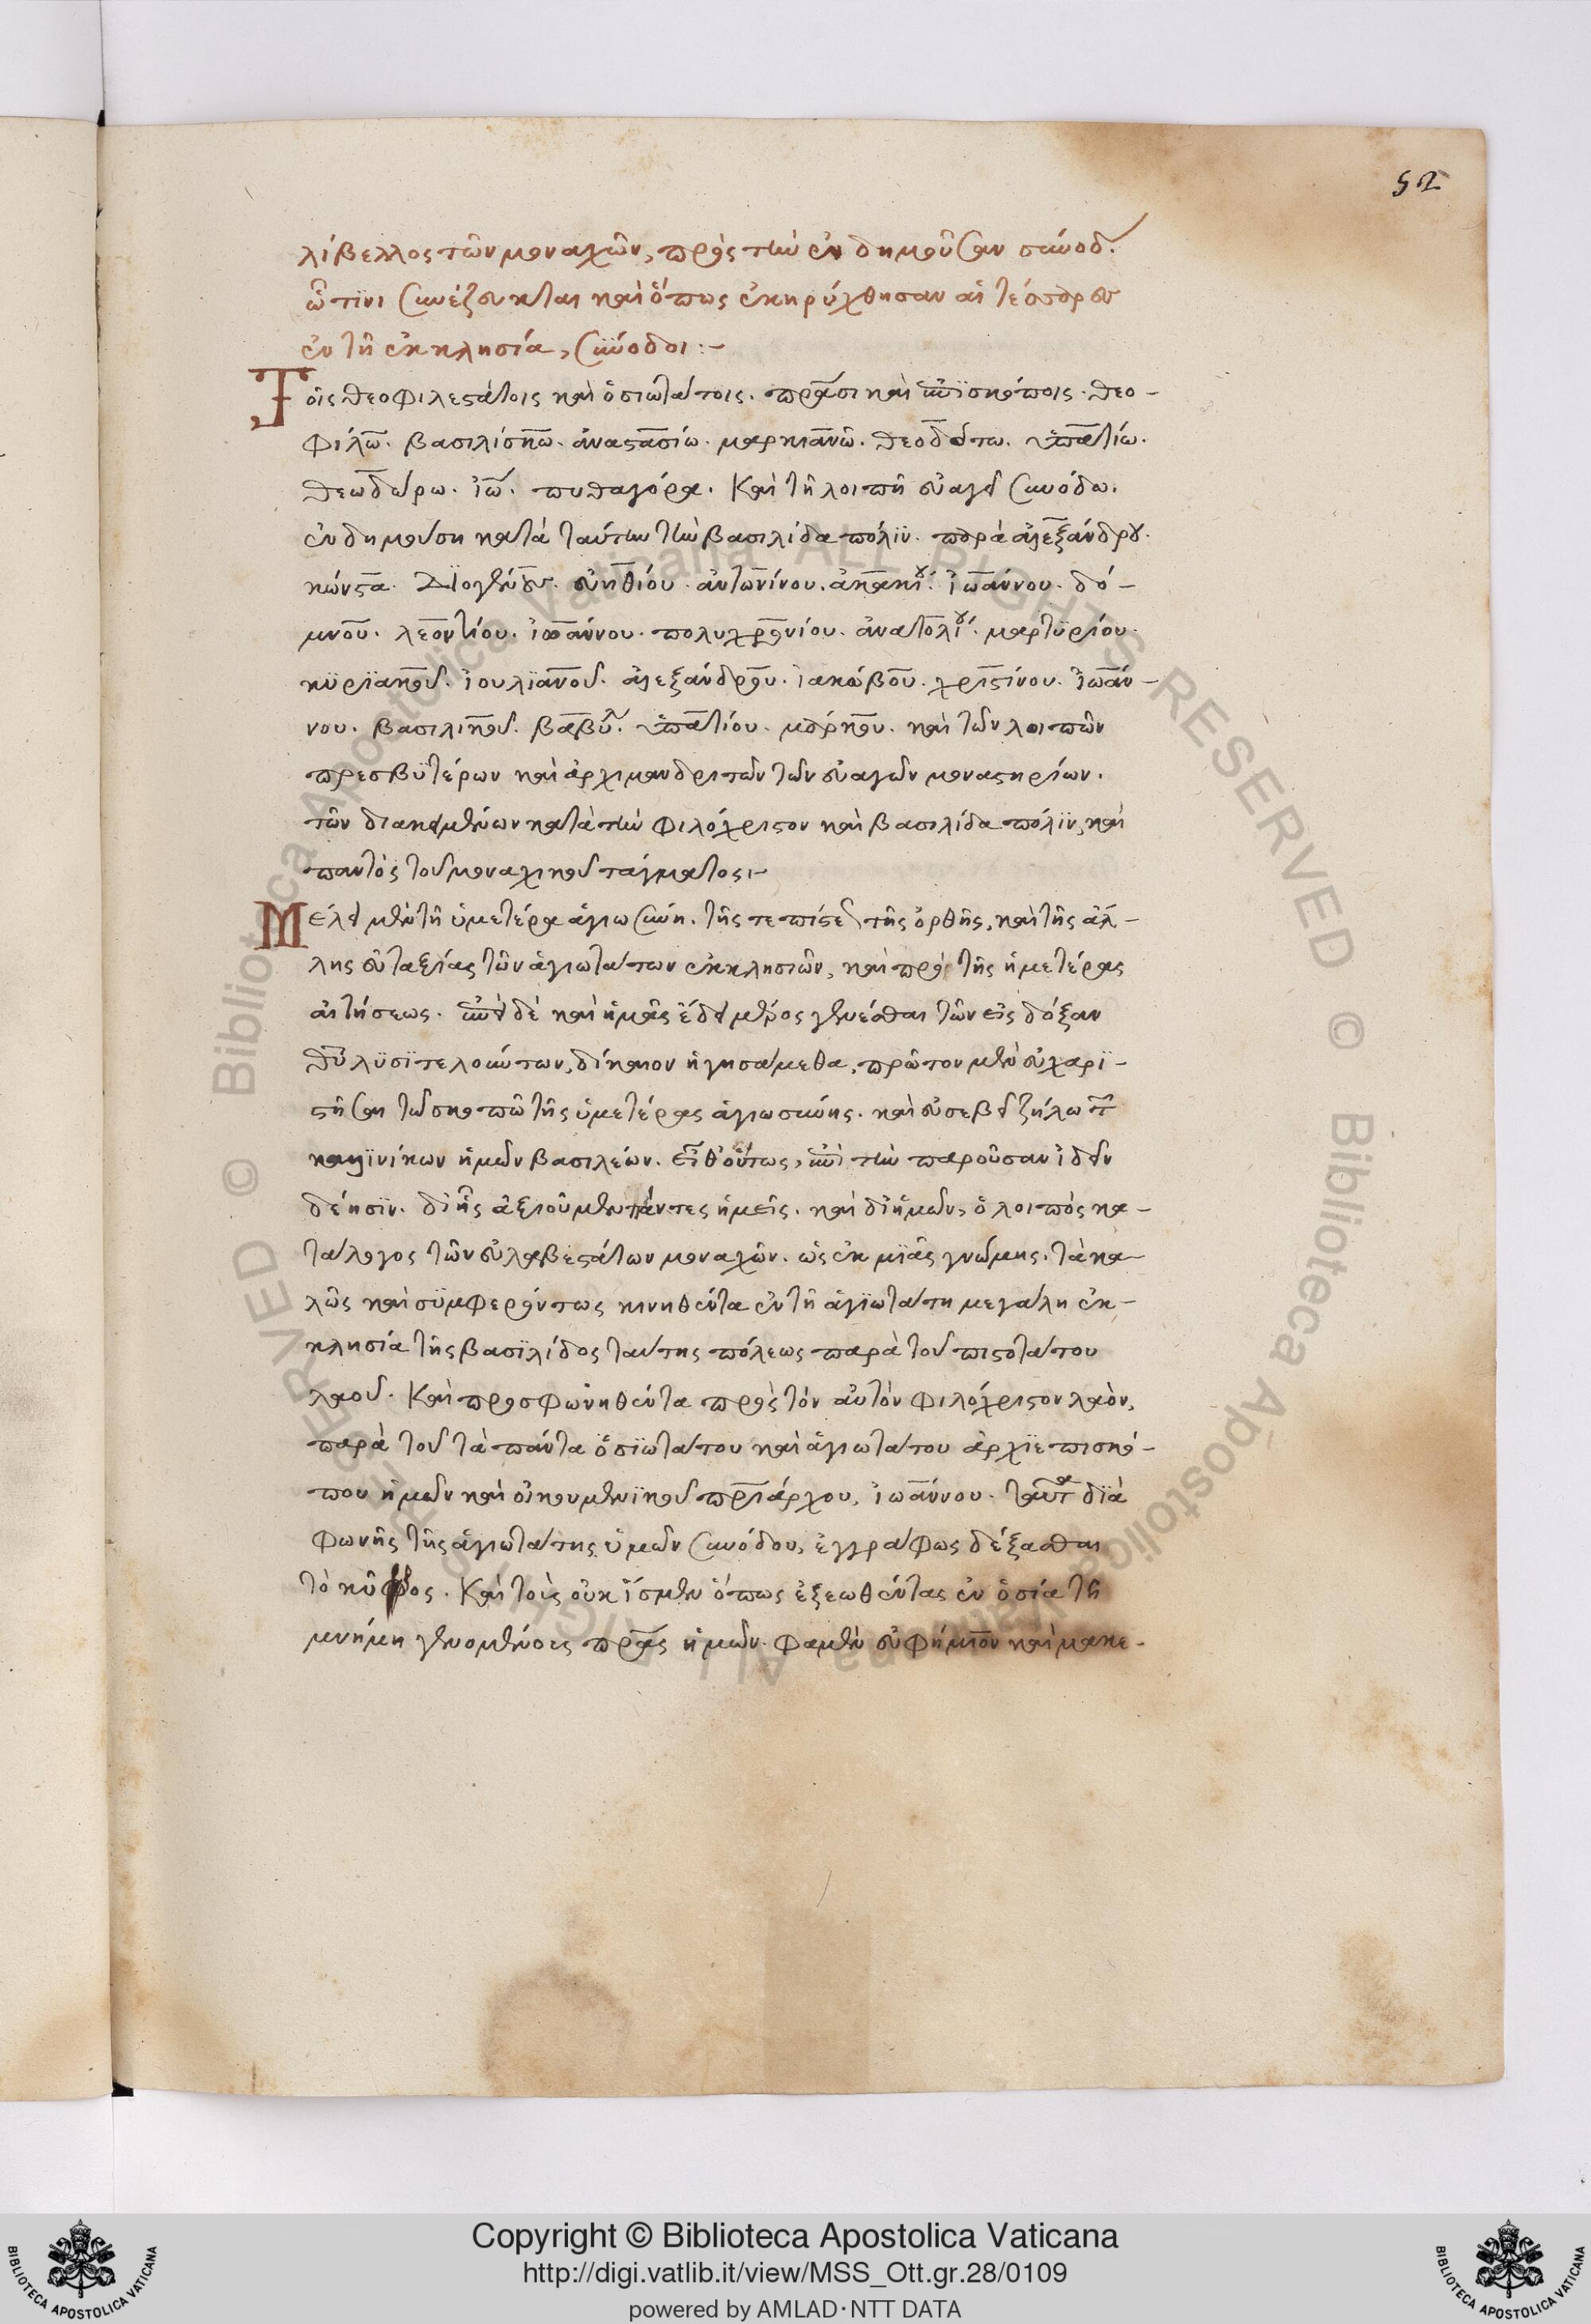 52
λίβελλος τῶν μοναχῶν, πρὸς τὴν ἐνδημοῦσαν σύνοδ.
ᾧτινι συνέζευκται καὶ ὅπως ἐκηρύχθησαν αἱ τέσσαρες
ἐν τῇ ἐκκλησία, σύνοδοι :-
Τοῖς θεοφιλεστάτοις καὶ ὁσιωτάτοις. πρᾶσι καὶ ἐπϊσκόποις. θεο-
φίλω. βασιλίσκω. ἀναστασίω. μαρκιανῶ. θεοδότω. ὑπατίω.
θεωδώρω. ἰω. πυθαγόρα. Καὶ τῇ λοιπῇ εὐαγεῖ συνόδω.
ἐνδημούση κατὰ ταύτην τὴν βασιλίδα πόλϊν. παρὰ ἀλεξάνδρου.
κώνστα. εὐηθίου. ἀντωνίνου. ἀκακίου. ἰωάννου. δό-
μνου. λεοντίου. ἰωάννου. πολυχρονίου. ἀνατολίου. μαρτϋρίου.
κϋρϊακοῦ. ἰουλϊανοῦ. ἀλεξάνδρου. ἰακώβου. χριστίνου. Ἰωάν-
νου. βασιλικοῦ. βαβύλ. ὑπατίου. μάρκου. καὶ τῶν λοιπῶν
πρεσβϋτέρων καὶ ἀρχιμανδριτῶν τῶν εὐαγῶν μοναστηρίων.
τῶν διακειμένων κατὰ τὴν φιλόχριστον καὶ βασιλίδα πόλϊν, καὶ
παντὸς τοῦ μοναχικοῦ τάγματος :-
Μέλει μὲν τῇ ὑμετέρα ἁγιωσύνη. τῆς τε πίστεως τῆς ὀρθῆς, καὶ τῆς ἄλ-
λης εὐταξίας τῶν ἁγιωτάτων ἐκκλησιῶν, καὶ πρὸ τῆς ἡμετέρας
αἰτήσεως. ἐπεὶ δὲ καὶ ἡμᾶς ἔδει μέρος γενέσθαι τῶν εἰς δόξαν
θυ λϋσϊτελούντων, δίκαιον ἡγησάμεθα, πρῶτον μὲν εὐχαρϊ-
στῆσαι τῶ σκοπῶ τῆς ὑμετέρας ἁγιωσύνης. καὶ εὐσεβεῖ ζήλω τῶν
καλλϊνίκων ἡμῶν βασιλέων. εἶθ' οὕτως, ἐπὶ τὴν παροῦσαν ἰδεῖν
δέησϊν. δι' ἧς ἀξιοῦμεν πάντες ἡμεῖς. καὶ δι' ἡμῶν, ὁ λοιπὸς κα-
τάλογος τῶν εὐλαβεστάτων μοναχῶν. ὡς ἐκ μϊᾶς γνώμης. τὰ κα-
λῶς καὶ σϋμφερόντως κινηθέντα ἐν τῇ ἁγϊωτάτη μεγάλη ἐκ-
κλησία τῆς βασϊλίδος ταύτης πόλεως παρὰ τοῦ πιστοτάτου
λαοῦ. Καὶ προσφωνηθέντα πρὸς τὸν αὐτὸν φιλόχριστον λαὸν,
παρὰ τοῦ τὰ πάντα ὁσϊωτάτου καὶ ἁγιωτάτου ἀρχϊεπισκό-
που ἡμῶν καὶ οἰκουμενϊκοῦ πριάρχου, ἰωάννου. ταῦτα δϊὰ
φωνῆς τῆς ἁγιωτάτης ὑμῶν συνόδου, ἐγγράφως δέξασθαι
τὸ κῦρος. Καὶ τοὺς οὐκ ἴσμεν ὅπως ἐξεωθέντας ἐν ὁσία τῇ
μνήμη γενομένοις πρᾶς ἡμῶν. φαμὲν εὐφήμιον καὶ μακε-
Copyright © Biblioteca Apostolica Vaticana
http://digi.vatlib.it/view/MSS_Ott.gr.28/0109
powered by AMLAD·NTT DATA
BIBLIOTECA APOSTOLICA VATICANA
BIBLIOTECA APOSTOLICA VATICANA